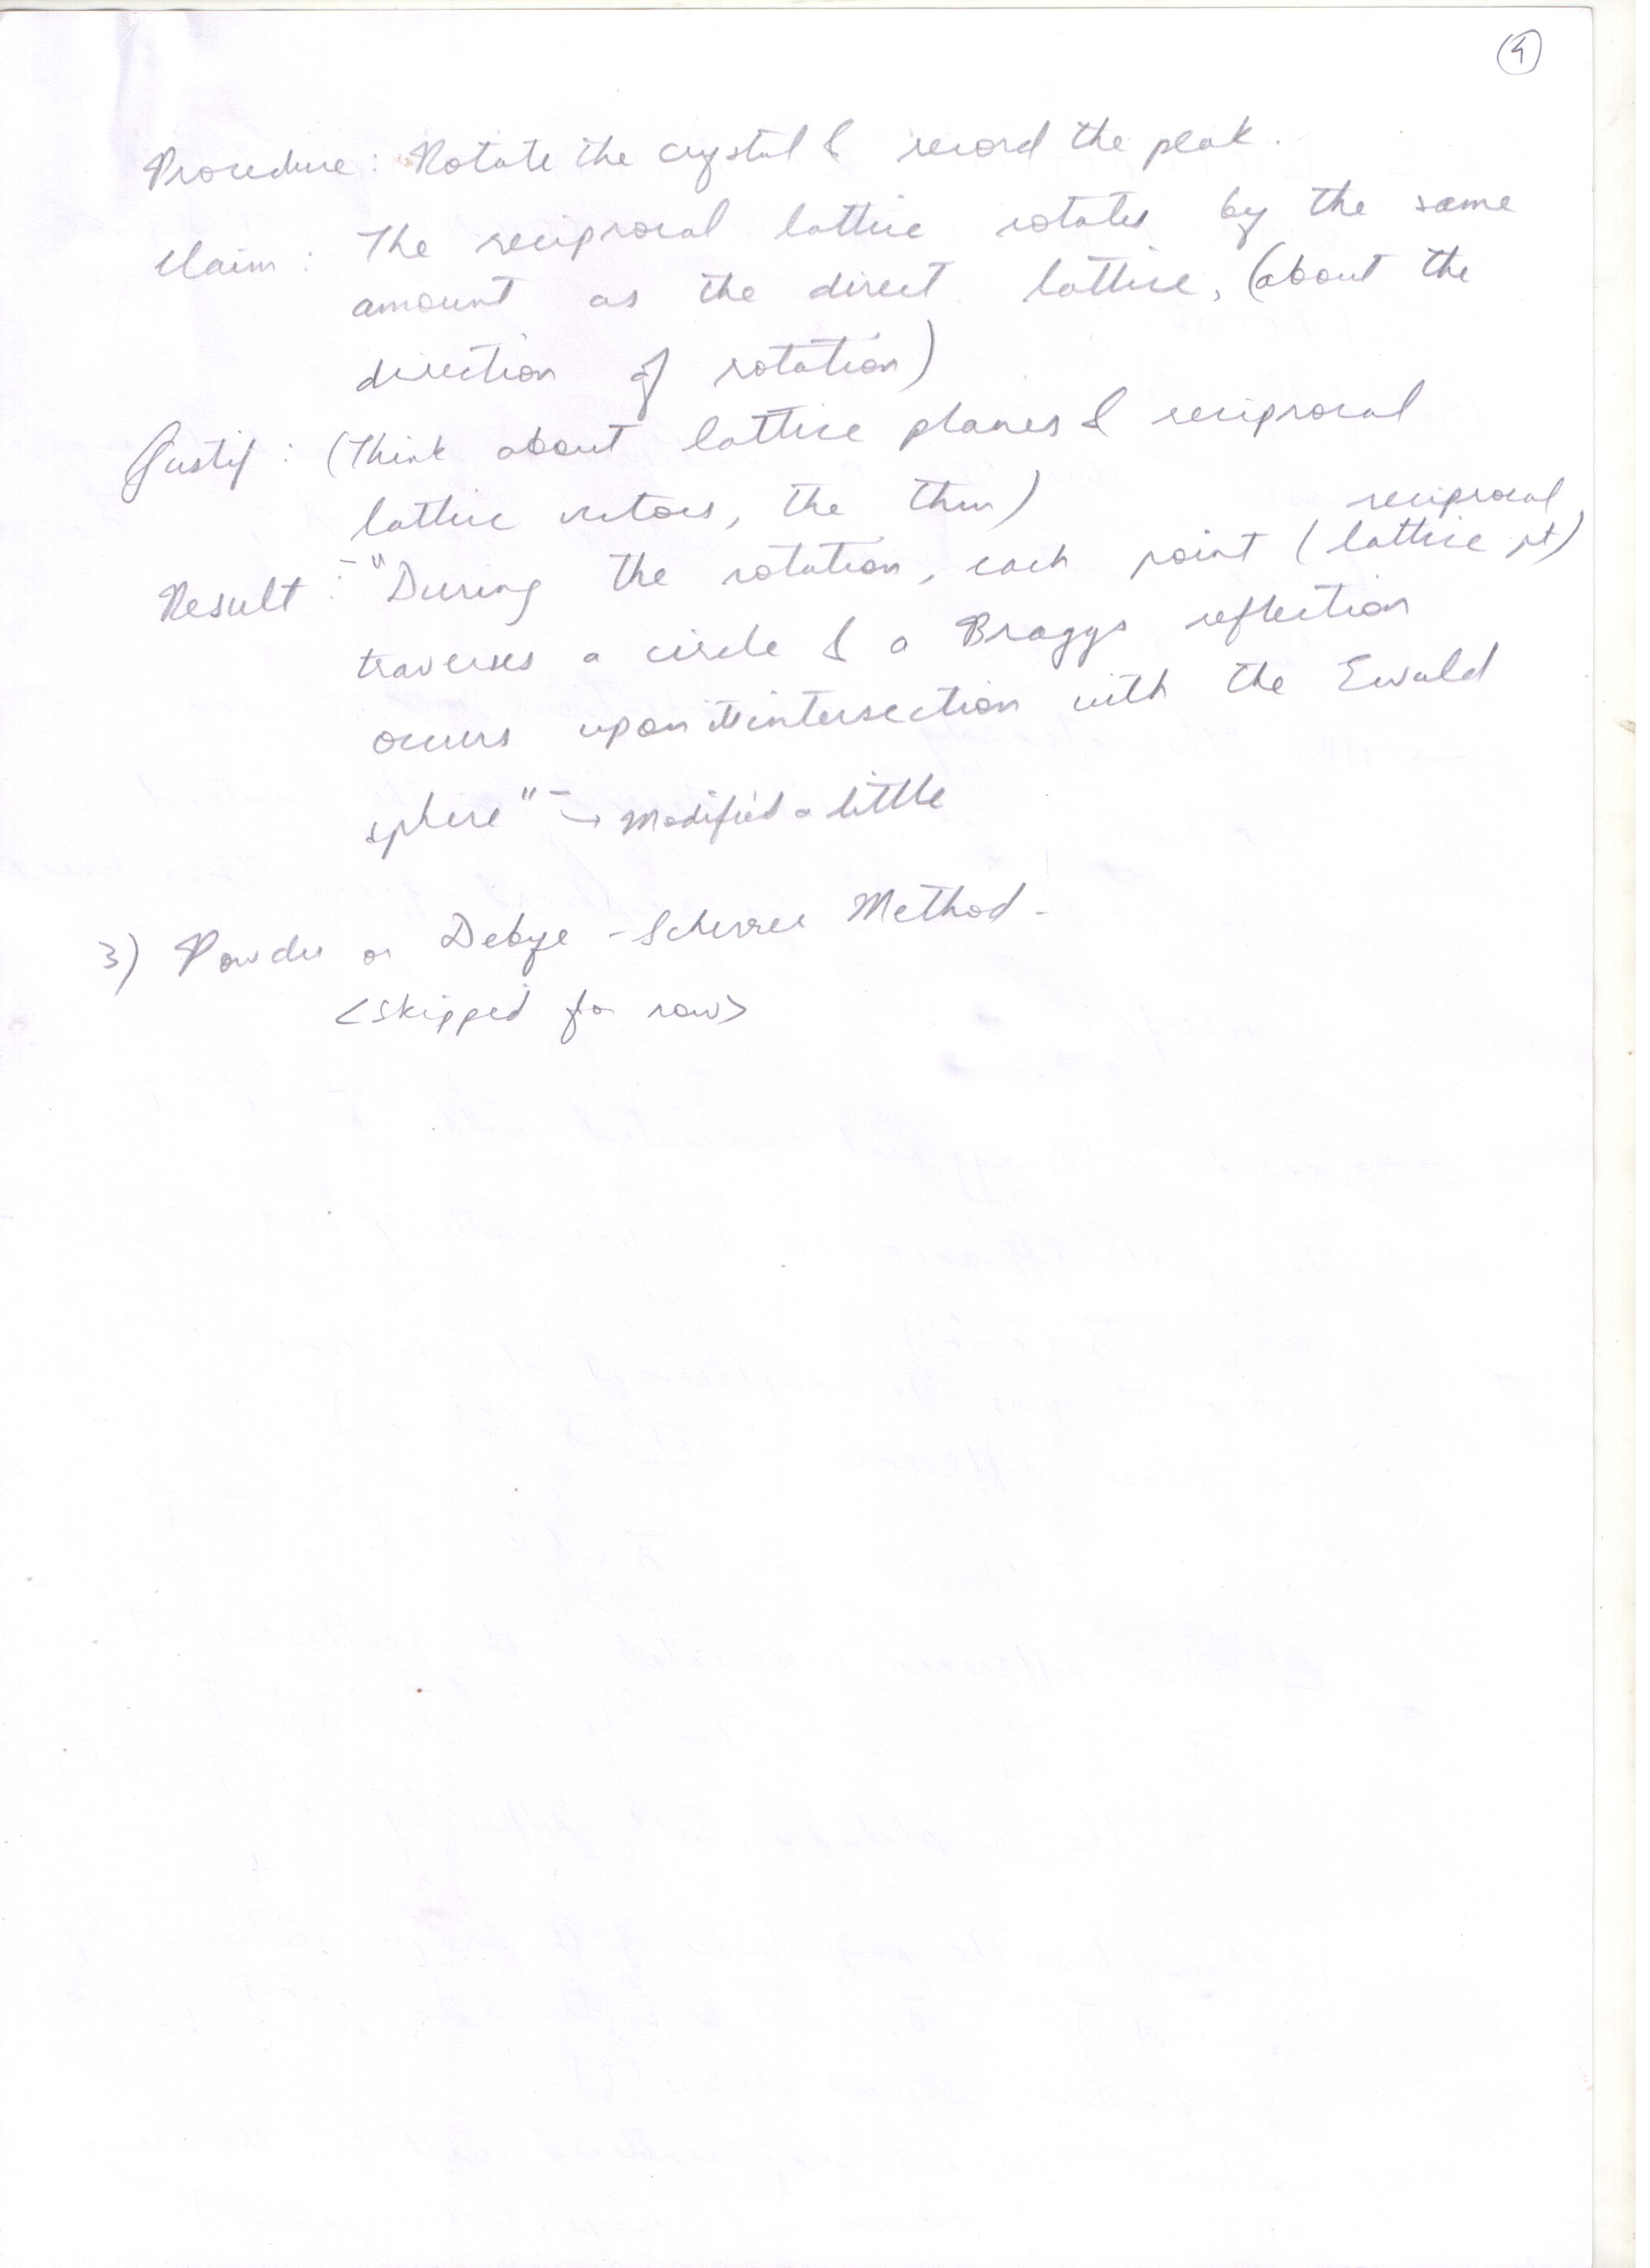 4
Procedure : Rotate the crystal & record the peak.
Claim : The reciprocal lattice rotates by the same
amount as the direct lattice, (about the
direction of rotation)
Justif : (Think about lattice planes & reciprocal
lattice vectors, the thm)
Result : - "During the rotation, each point (reciprocal lattice pt)
traverses a circle & a Braggs reflection
occurs upon intersection with the Ewald
sphere" - → Modified a little
3) Powder or Debye - Scherrer Method -
<skipped for now>